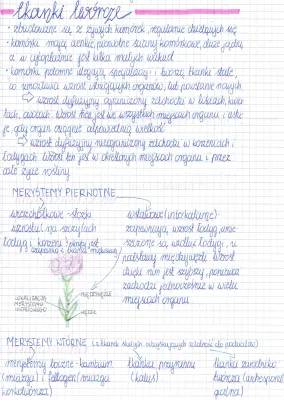 tkanki twórcze
• zbudowane są z żywych komórek, regularnie dzielących się
• komórki mają cienkie, pierwotne ściany komórkowe, duże jądra,
a w cytoplazmie jest kilka małych wakuol
• komórki potomne ulegają specjalizacji i tworzą tkanki stałe,
co umożliwia wzrost organów, lub powstanie nowych
⇨ wzrost dyfuzyjny ograniczony zachodzi w liściach, kwia-
tach, owocach. wzrost we wszystkich miejscach organu i ustaje
gdy organ osiągnie odpowiednią wielkość
⇨ wzrost nieograniczony zachodzi w korzeniach i
łodygach. wzrost ten jest w określonych miejscach organu i przez
całe życie rośliny
MERYSTEMY PIERWOTNE
wierzchołkowe - stożki
wzrostu na szczytach
łodyg i korzeni
wstawowe (interkalarne)-
zapewniają wzrost łodyg, umie-
szczone są wzdłuż łodygi, u
nadstawy międzywęźli. wzrost
dzięki nim jest szybszy, ponieważ
zachodzi jednocześnie w wielu
miejscach organu
LOKALIZACJA
MERYSTEMU
MIĘDZYWĘŹLE
WĘZEŁ
MERYSTEMY WTÓRNE (z tkanek stałych odzyskujących zdolność do podziałów)
merystemy boczne - kambium
(miazga) i fellogen (miazga
korkotwórcza)
tkanka przyranna
(kalus)
tkanka zarodniko
twórcza (archespo